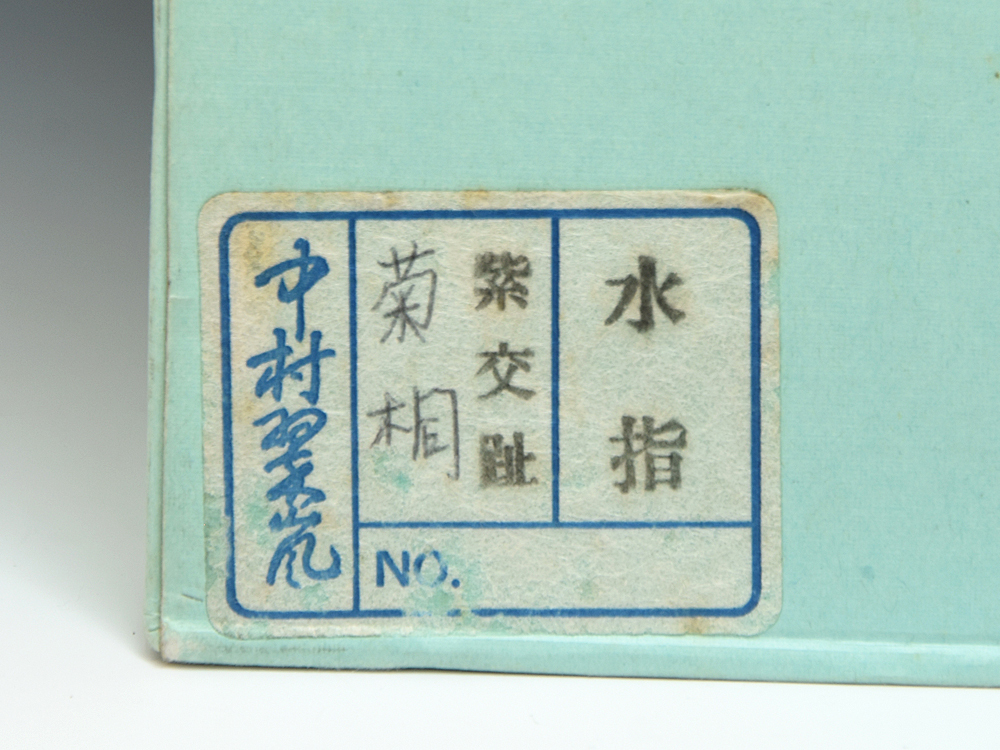 水指
紫交趾
菊桐
NO.
中村翠嵐